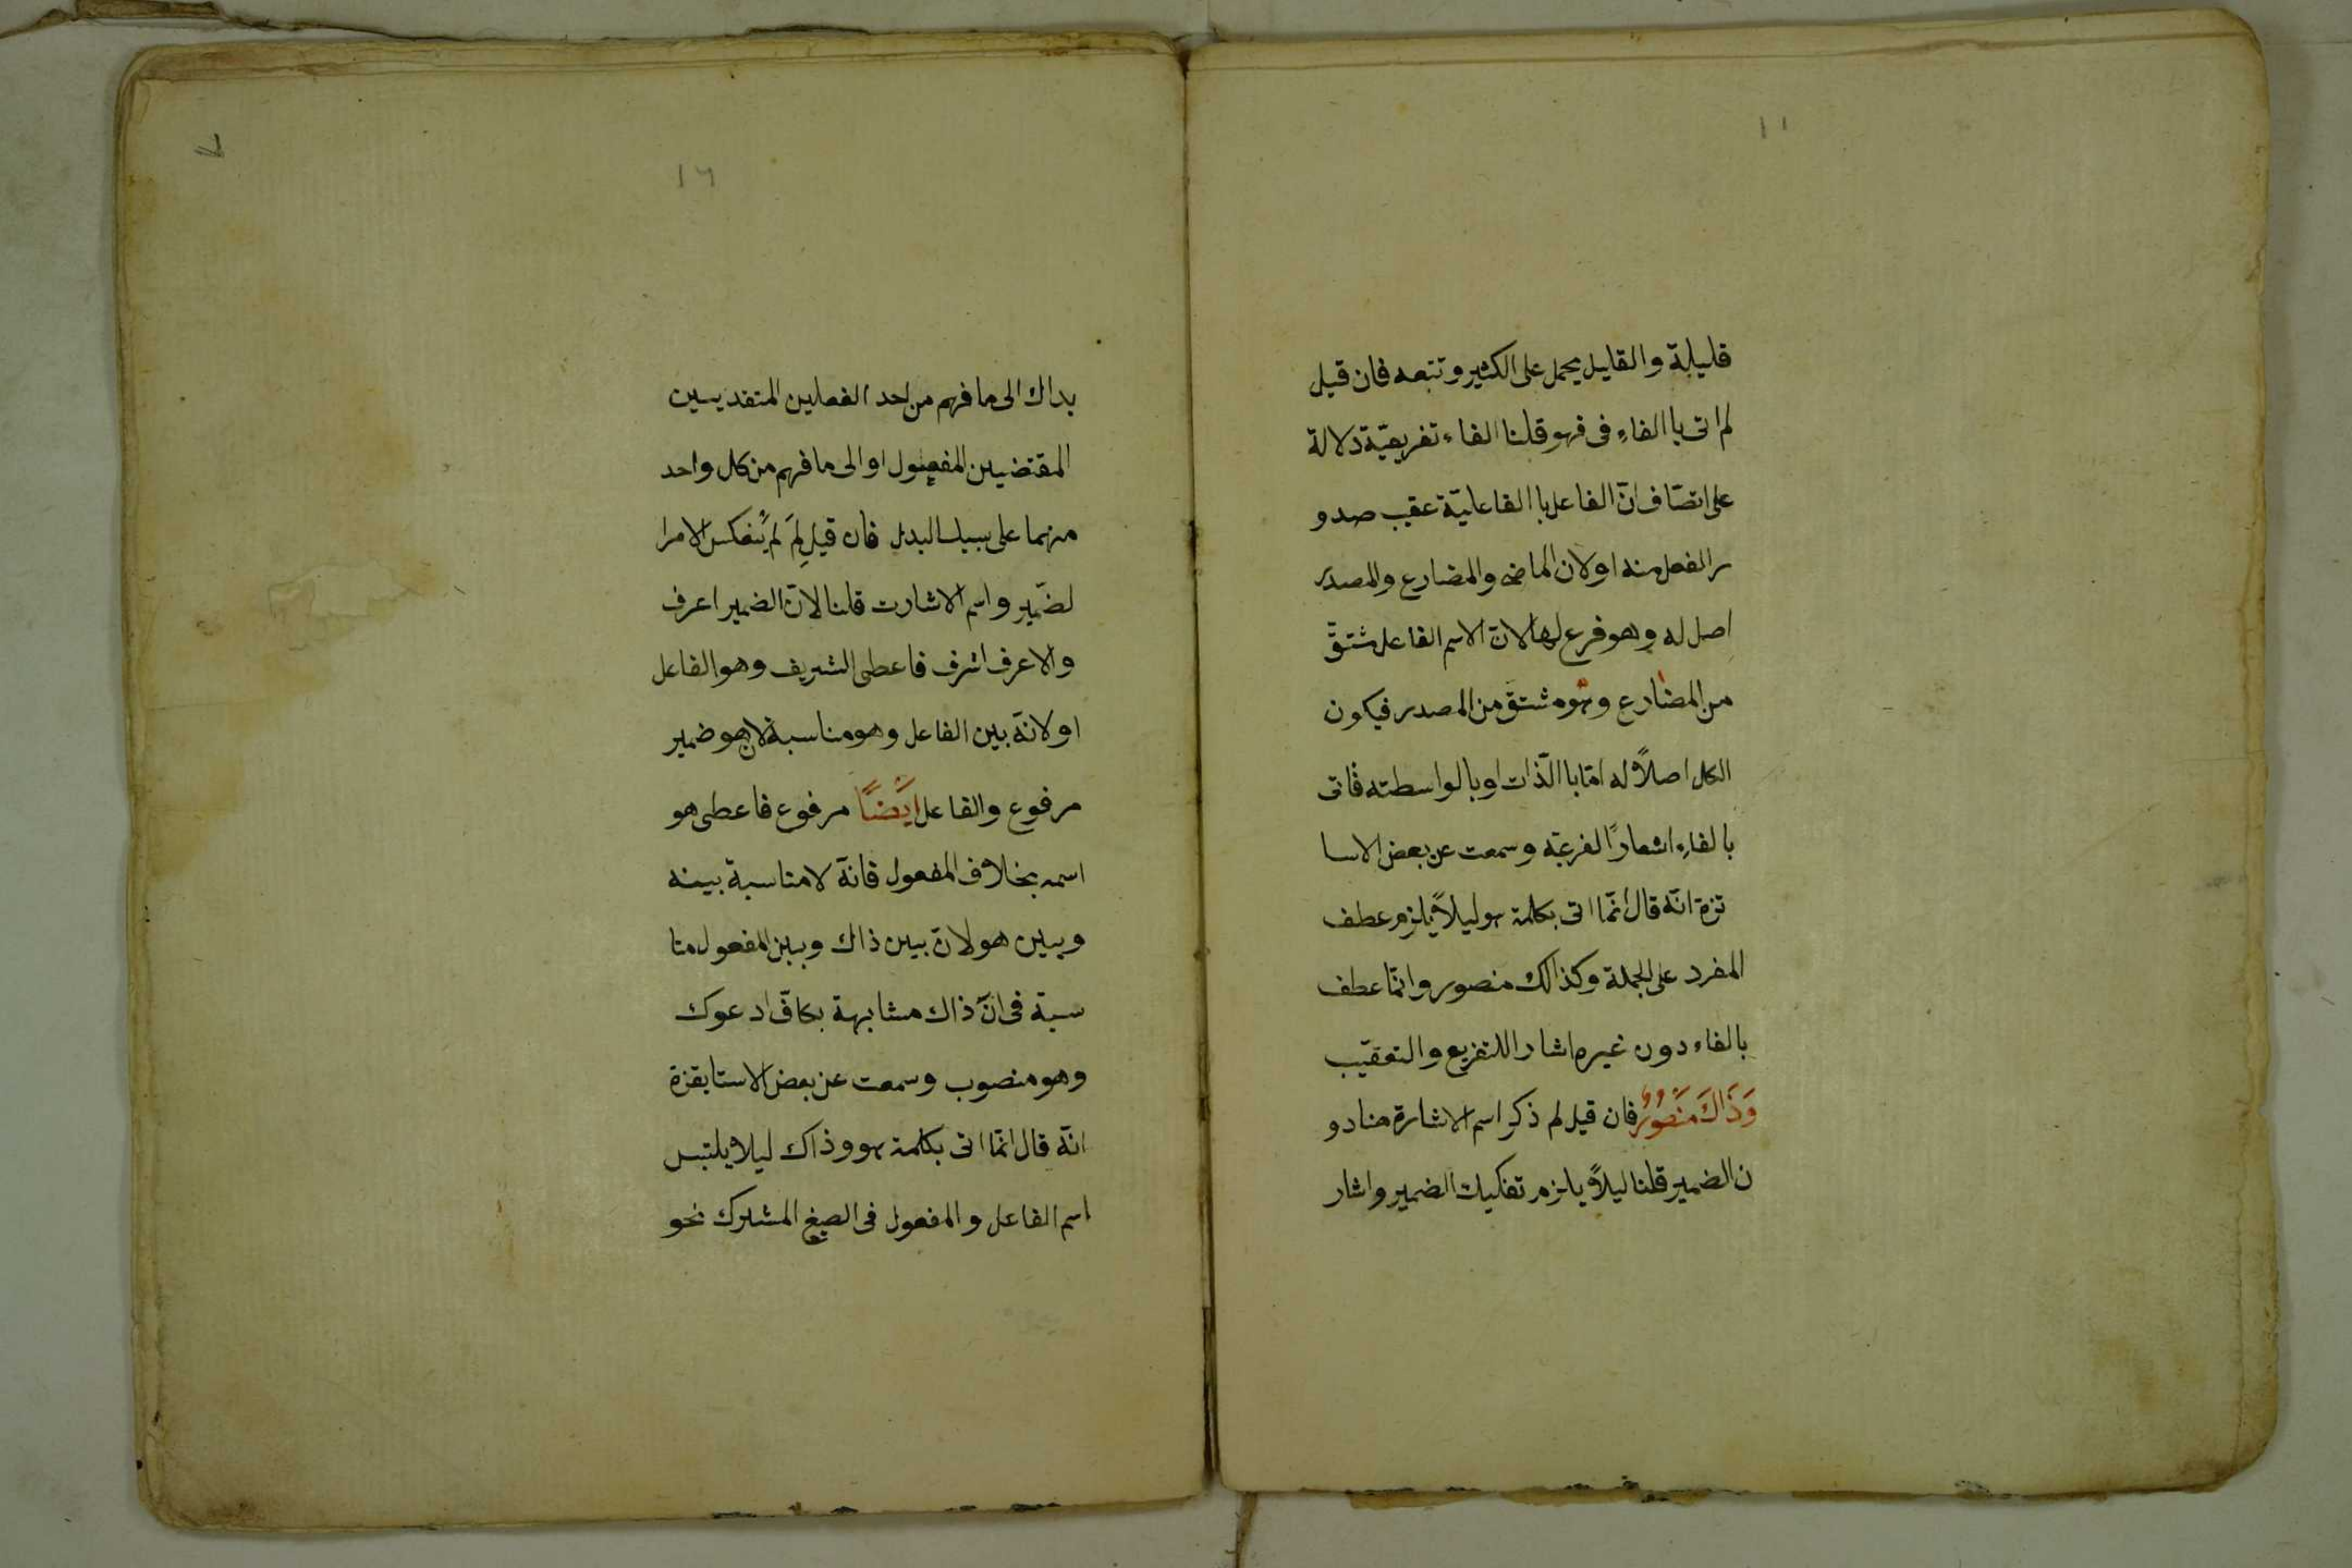 ١١
قليلة والقليل يحمل على الكثير وتتبعه فان قيل
لم اتى باالفاءِ فى فهو قلنا الفاء تفريعيّة دلالة
على اتصّاف انّ الفاعل باالفاعليّة عقيب صدو
ر الفعل منه اولان الماضى والمضارع والمصدر
اصل له وهو فرع لها لانّ الاسم الفاعل مشتقّ
من المضارع وهو مشتقّ من المصدر فيكون
الكل اصلاً له امّا باالذّات او بالواسطته فاتى
بالفاءِ اشعارًا لفرعيّه وسمعت عن بعض الاسا
تزة انّه قال انّما اتى بكلمة هو ليلاً يلزم عطف
المفرد على الجملة وكذالك منصور وانّما عطف
بالفاء دون غيره اشار اللتفريع والتعقيّب
وَذَاكَ مَنْصُورٌ فان قيل لم ذكر اسم الاشارة هنا دو
ن الضمير قلنا ليلاً يلزم تفكيك الضمير واشار
٧
١٢
بذاك الى ما فهم من احد الفعلين المتقديمين
المقتضيين المفعول او الى ما فهم من كل واحد
منهما على سبيل البدل فان قيل لِمَ لم يُنعكس الامر ا
لضّمير واسم الاشارت قلنا لانّ الضمير اعرف
والاعرف اشرف فاعطى الشريف وهو الفاعل
اولانّه بين الفاعل وهو مناسبة لان هو ضمير
مرفوع والفاعل ايَْضًا مرفوع فاعطى هو
اسمه بخلاف المفعول فانّه لا مناسبة بينه
وبين هو لانّ بين ذاك وبين المفعول منا
سبة فى انّ ذاك مشابهة بكافّ ادعوك
وهو منصوب وسمعت عن بعض الاستايقزة
انّه قال انّما اتى بكلمة هو وذاك ليلا يلتبس
اسم الفاعل والمفعول فى الصيغ المشترك نحو